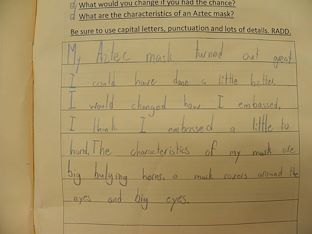 What would you change if you had the chance?
What are the characteristics of an Aztec mask?
Be sure to use capital letters, punctuation and lots of details. RADD,
My Aztec mask turned out great
I could have done a little better.
I would changed how I embassed,
I think I embrosed a little to
hard. The characteristics of my mask are
big bulging horns, a mask covers around the
eyes and big eyes.